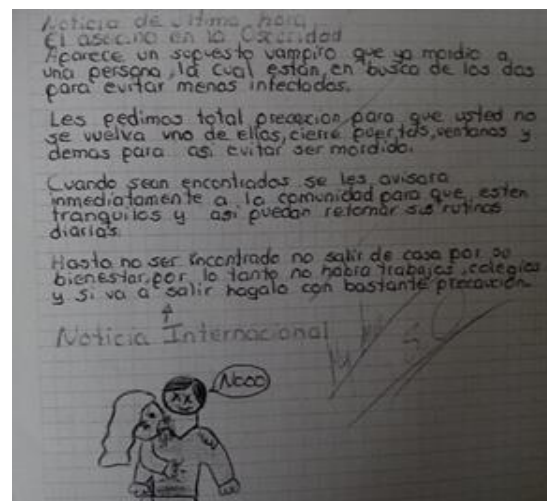 Noticia de Ultima hora
El asecino en la Oscuridad
Aparece un supuesto vampiro que ya mordio a
una persona, la cual están, en busca de los dos
para evitar menos infectados.
Les pedimos total precacion para que usted no
se vuelva uno de ellos, cierre puertas, ventanas y
demas para asi evitar ser mordido.
Cuando sean encontrados se les avisara
inmediatamente a la comunidad para que esten
tranquilos y asi puedan retomar sus rutinas
diarias.
Hasta no ser incontrado no salir de casa por su
bienestar, por lo tanto no habra trabajos, colegios
y si va a salir hagalo con bastante precaución.
Noticia Internacional
Nooo